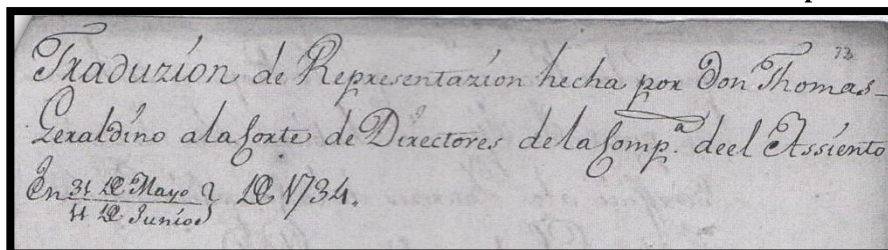 73
Traduzion de Representazion hecha por Don Thomas
Geraldino a la Corte de Directores de la Comp.ª de el Assiento
En 31 de Mayo
11 de Junio de 1734.